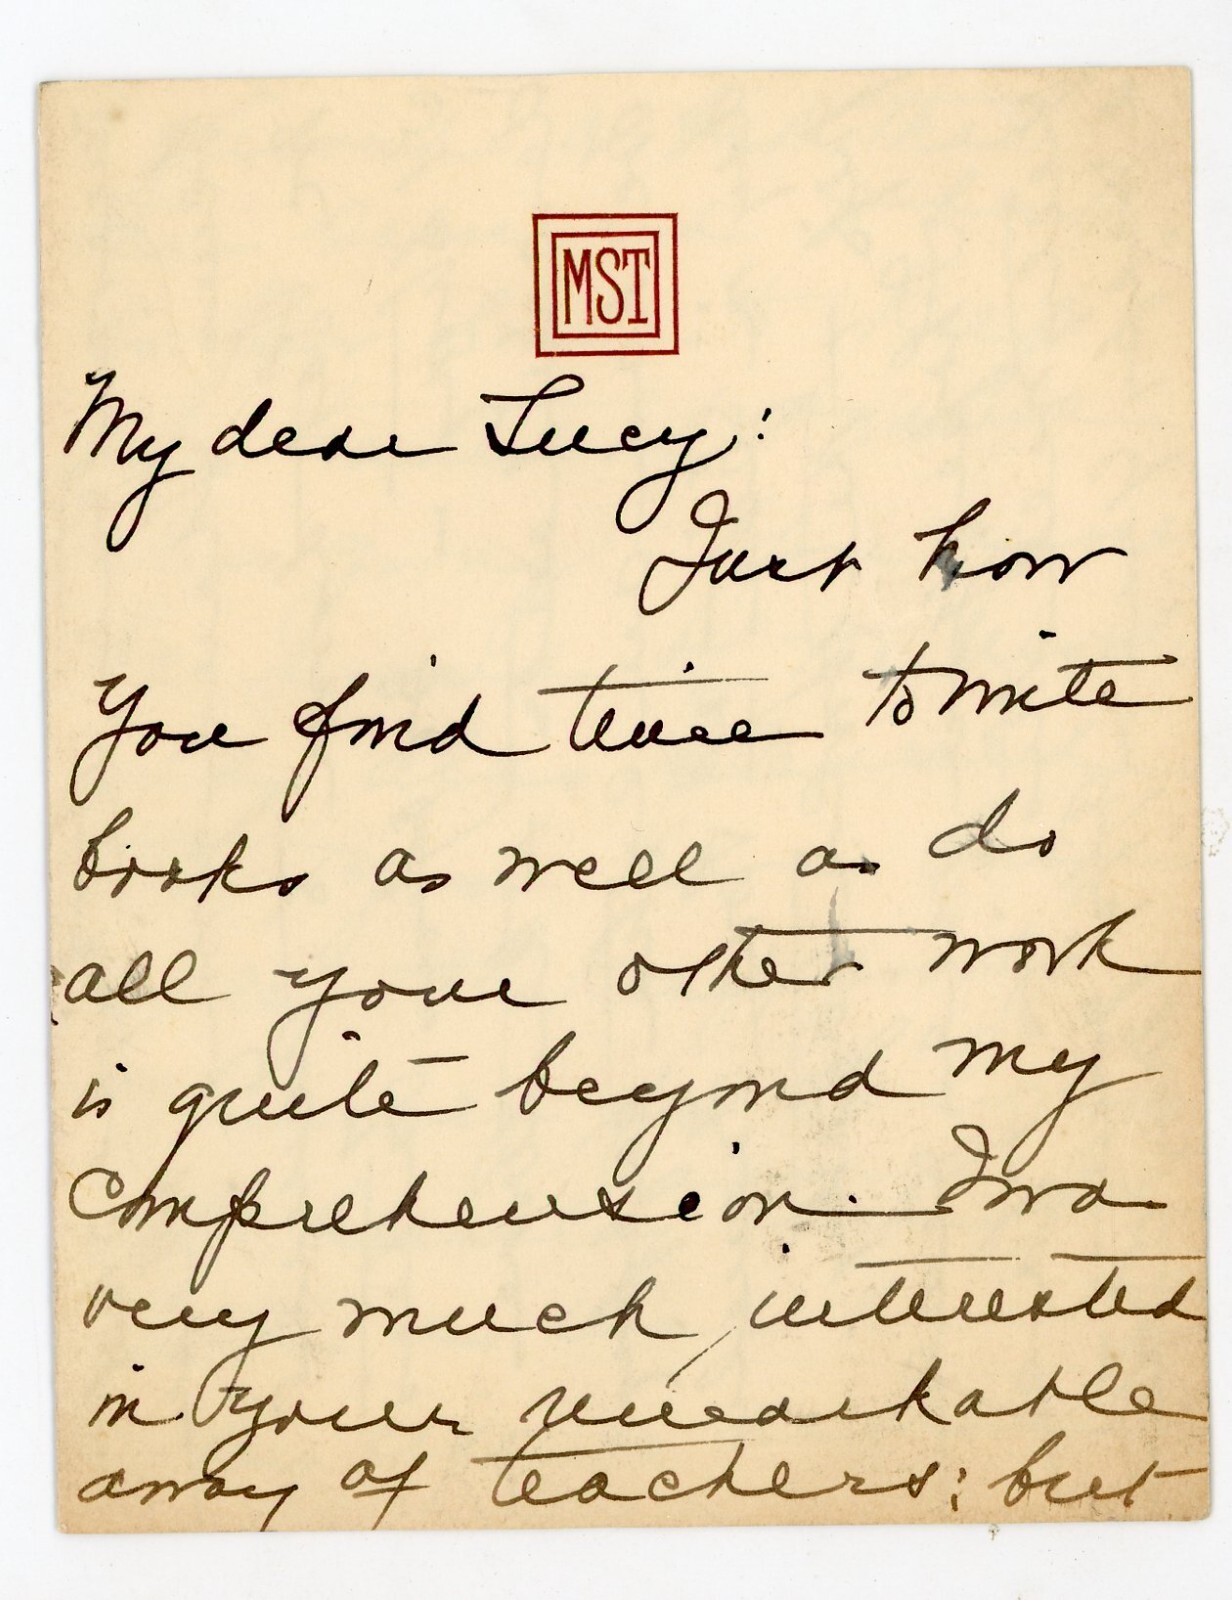 MST
My dear Lucy:
Just how
you find time to write
books as well as do
all your other work
is quite beyond my
comprehension. I was
very much interested
in your remarkable
array of teachers; but